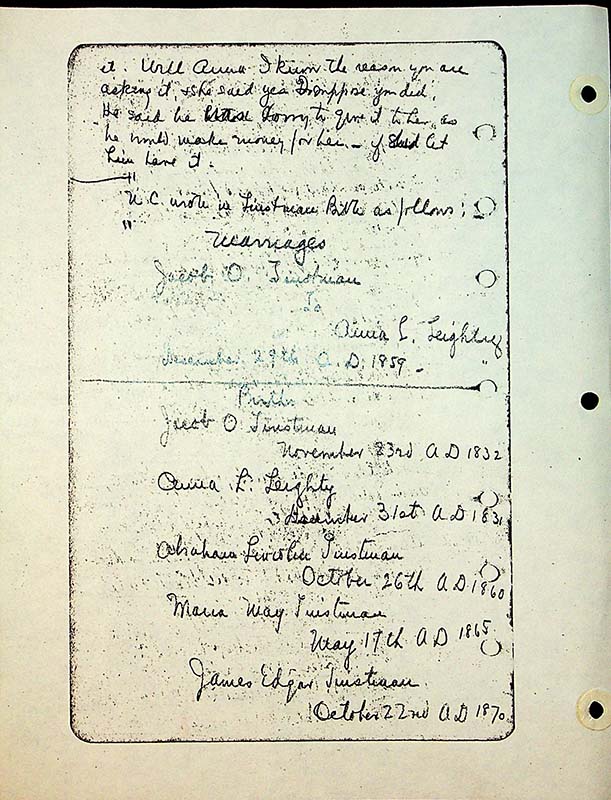 it. Well Anna I know the reason you are
asking it, & she said yes I suppose you did.
He said he sorry to give it to her, as
he would make money for her – if she'd let
him have it.
"
N C. wrote in Tinstman Bible as follows:
"
Marriages
Jacob O. Tinstman
To
Anna L. Leighty
December 29th A.D. 1859 "
Births
Jacob O Tinstman
November 23rd A D 1832
Anna L. Leighty
December 31st A D 1831
Abraham Lincoln Tinstman
October 26th A D 1860
Maria May Tinstman
May 17th A D 1865
James Edgar Tinstman
October 22nd A D 1870